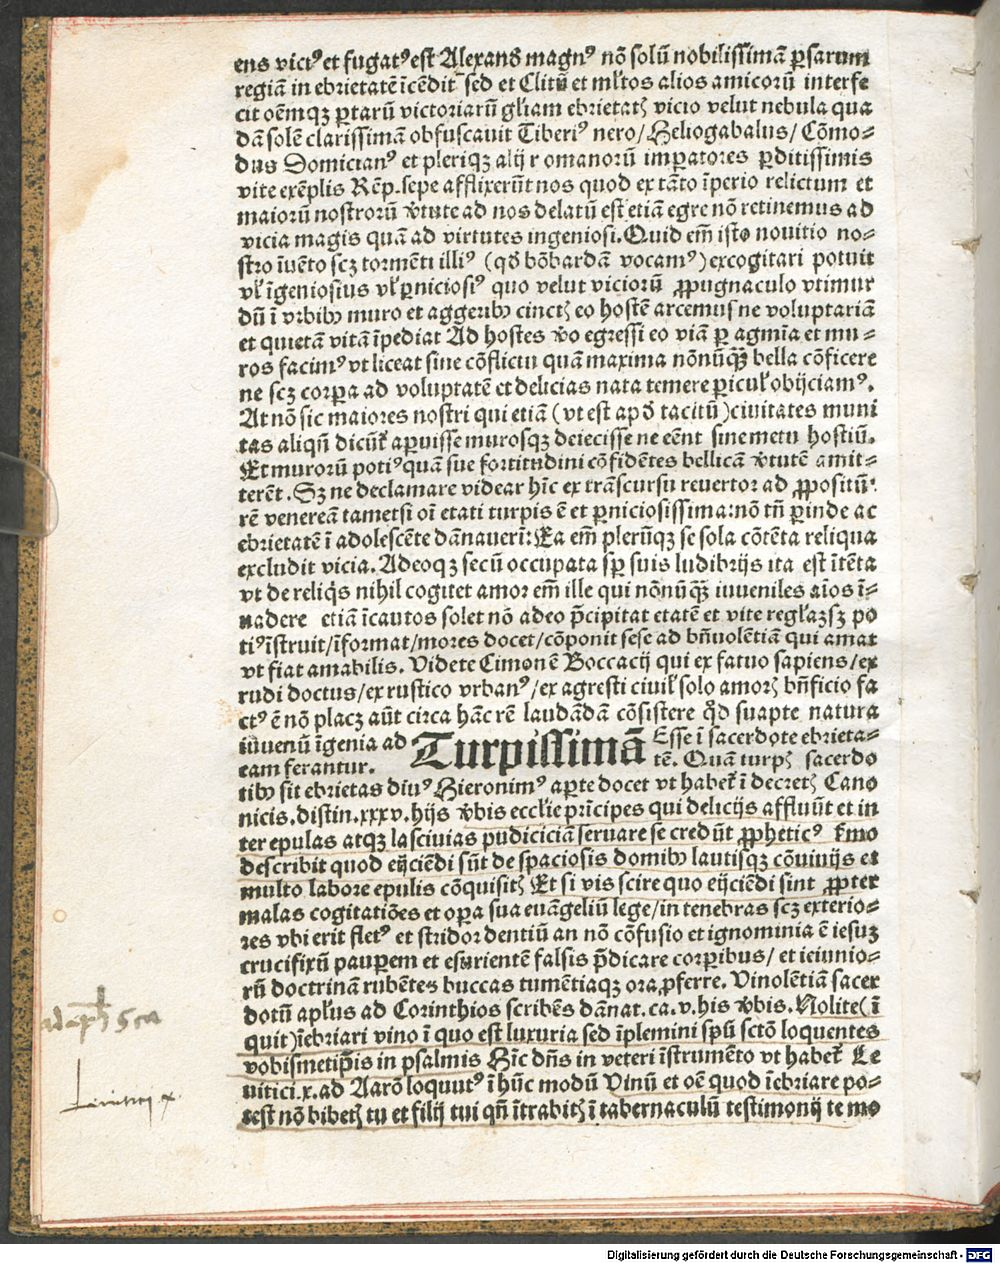 ens victꝰ et fugatꝰ est Alexanď magnꝰ nō solū nobilissimā ꝑsarum
regiā in ebrietatē īcēdit sed et Clitū et ml̄tos alios amicorū interfe
cit oēmqꝫ ꝑtarū victoriarū gl̄iam ebrietatꝭ vicio velut nebula qua
dā solē clarissimā obfuscauit Tiberiꝰ nero/ Heliogabalus/ Cōmo⸗
dus Domicianꝰ et pleriqꝫ alij r omanorū imꝑatores ꝑditissimis
vite exēplis Rēp. sepe afflixerūt nos quod ex tāto īperio relictum et
maiorū nostrorū v̓tute ad nos delatū est etiā egre nō retinemus ad
vicia magis quā ad virtutes ingeniosi. Quid em̄ isto nouitio no⸗
stro īuēto scꝫ tormēti illiꝰ (qď bōbardā vocamꝰ) excogitari potuit
vl̓ īgeniosius vl̓ ꝑniciosiꝰ quo velut viciorū ꝓpugnaculo vtimur
dū ī vrbibꝰ muro et aggeribꝰ cinctꝭ eo hostē arcemus ne voluptariā
et quietā vitā īpediat Ad hostes v̓o egressi eo viā ꝑ agmīa et mu⸗
ros facimꝰ vt liceat sine cōflictu quā maxima nōnūqꝫ bella cōficere
ne scꝫ corꝑa ad voluptatē et delicias nata temere ꝑicul̓ obijciamꝰ.
At nō sic maiores nostri qui etiā (vt est apď tacitū) ciuitates muni
tas aliqn̄ dicūt̓ aꝑuisse murosqꝫ deiecisse ne eēnt sine metu hostiū.
Et murorū potiꝰ quā sue fortitudini cōfidētes bellicā v̓tutē amit⸗
terēt. Sꝫ ne declamare videar hīc ex trāscursu reuertor ad ꝓpositū.
rē venereā tametsi oī etati turpis ē et ꝑniciosissima: nō tn̄ ꝑinde ac
ebrietatē ī adolescēte dānauerī: Ea em̄ plerūqꝫ se sola cōtēta reliqua
excludit vicia. Adeoqꝫ secū occupata sꝑ suis ludibrijs ita est ītēta
vt de reliq̇s nihil cogitet amor em̄ ille qui nōnūqꝫ iuueniles aīos ī⸗
uadere etiā īcautos solet nō adeo p̄cipitat etatē et vite regl̓aꝫ sꝫ po
tiꝰ īstruit/ īformat/ mores docet/ cōponit sese ad bn̄uolētiā qui amat
vt fiat amabilis. Videte Cimonē Boccacij qui ex fatuo sapiens/ ex
rudi doctus/ ex rustico vrbanꝰ/ ex agresti ciuil̓ solo amorꝭ bn̄ficio fa
ctꝰ ē nō placꝫ aūt circa hāc rē laudādā cōsistere qď suapte natura
iuuenū īgenia ad
eam ferantur.
Turpissimā Esse ī sacerdote ebrieta⸗
tē. Quā turpꝭ sacerdo
tibꝰ sit ebrietas diuꝰ Hieronimꝰ aꝑte docet vt habet̓ ī decretꝭ Cano
nicis. distin. xxxv. hijs v̓bis eccl̄ie prīcipes qui delicijs affluūt et in
ter epulas atqꝫ lasciuias pudiciciā seruare se credūt ꝓpheticꝰ ẜmo
describit quod eijciēdi sūt de spaciosis domibꝰ lautisqꝫ cōuiuijs et
multo labore epulis cōquisitꝭ Et si vis scire quo eijciēdi sint ꝓpter
malas cogitatiōes et oꝑa sua euāgeliū lege/ in tenebras scꝫ exterio⸗
res vbi erit fletꝰ et stridor dentiū an nō cōfusio et ignominia ē iesuꝫ
crucifixū pauꝑem et esurientē falsis p̄dicare corꝑibus/ et ieiunio⸗
rū doctrinā rubētes buccas tumētiaqꝫ ora ꝓferre. Vinolētiā sacer
dotū apl̓us ad Corinthios scribēs dānat. ca. v. his v̓bis. Nolite (ī
quit) īebriari vino ī quo est luxuria sed īplemini spū sctō loquentes
vobismetip̄is in psalmis Hīc dn̄s in veteri īstrumēto vt habet̓ Le
uitici. x. ad Aarō loquutꝰ ī hūc modū Vinū et oē quod īebriare po⸗
test nō bibetꝭ tu et filij tui qn̄ ītrabitꝭ ī tabernaculū testimonij te mo
Leuitici x.
Digitalisierung gefördert durch die Deutsche Forschungsgemeinschaft - DFG